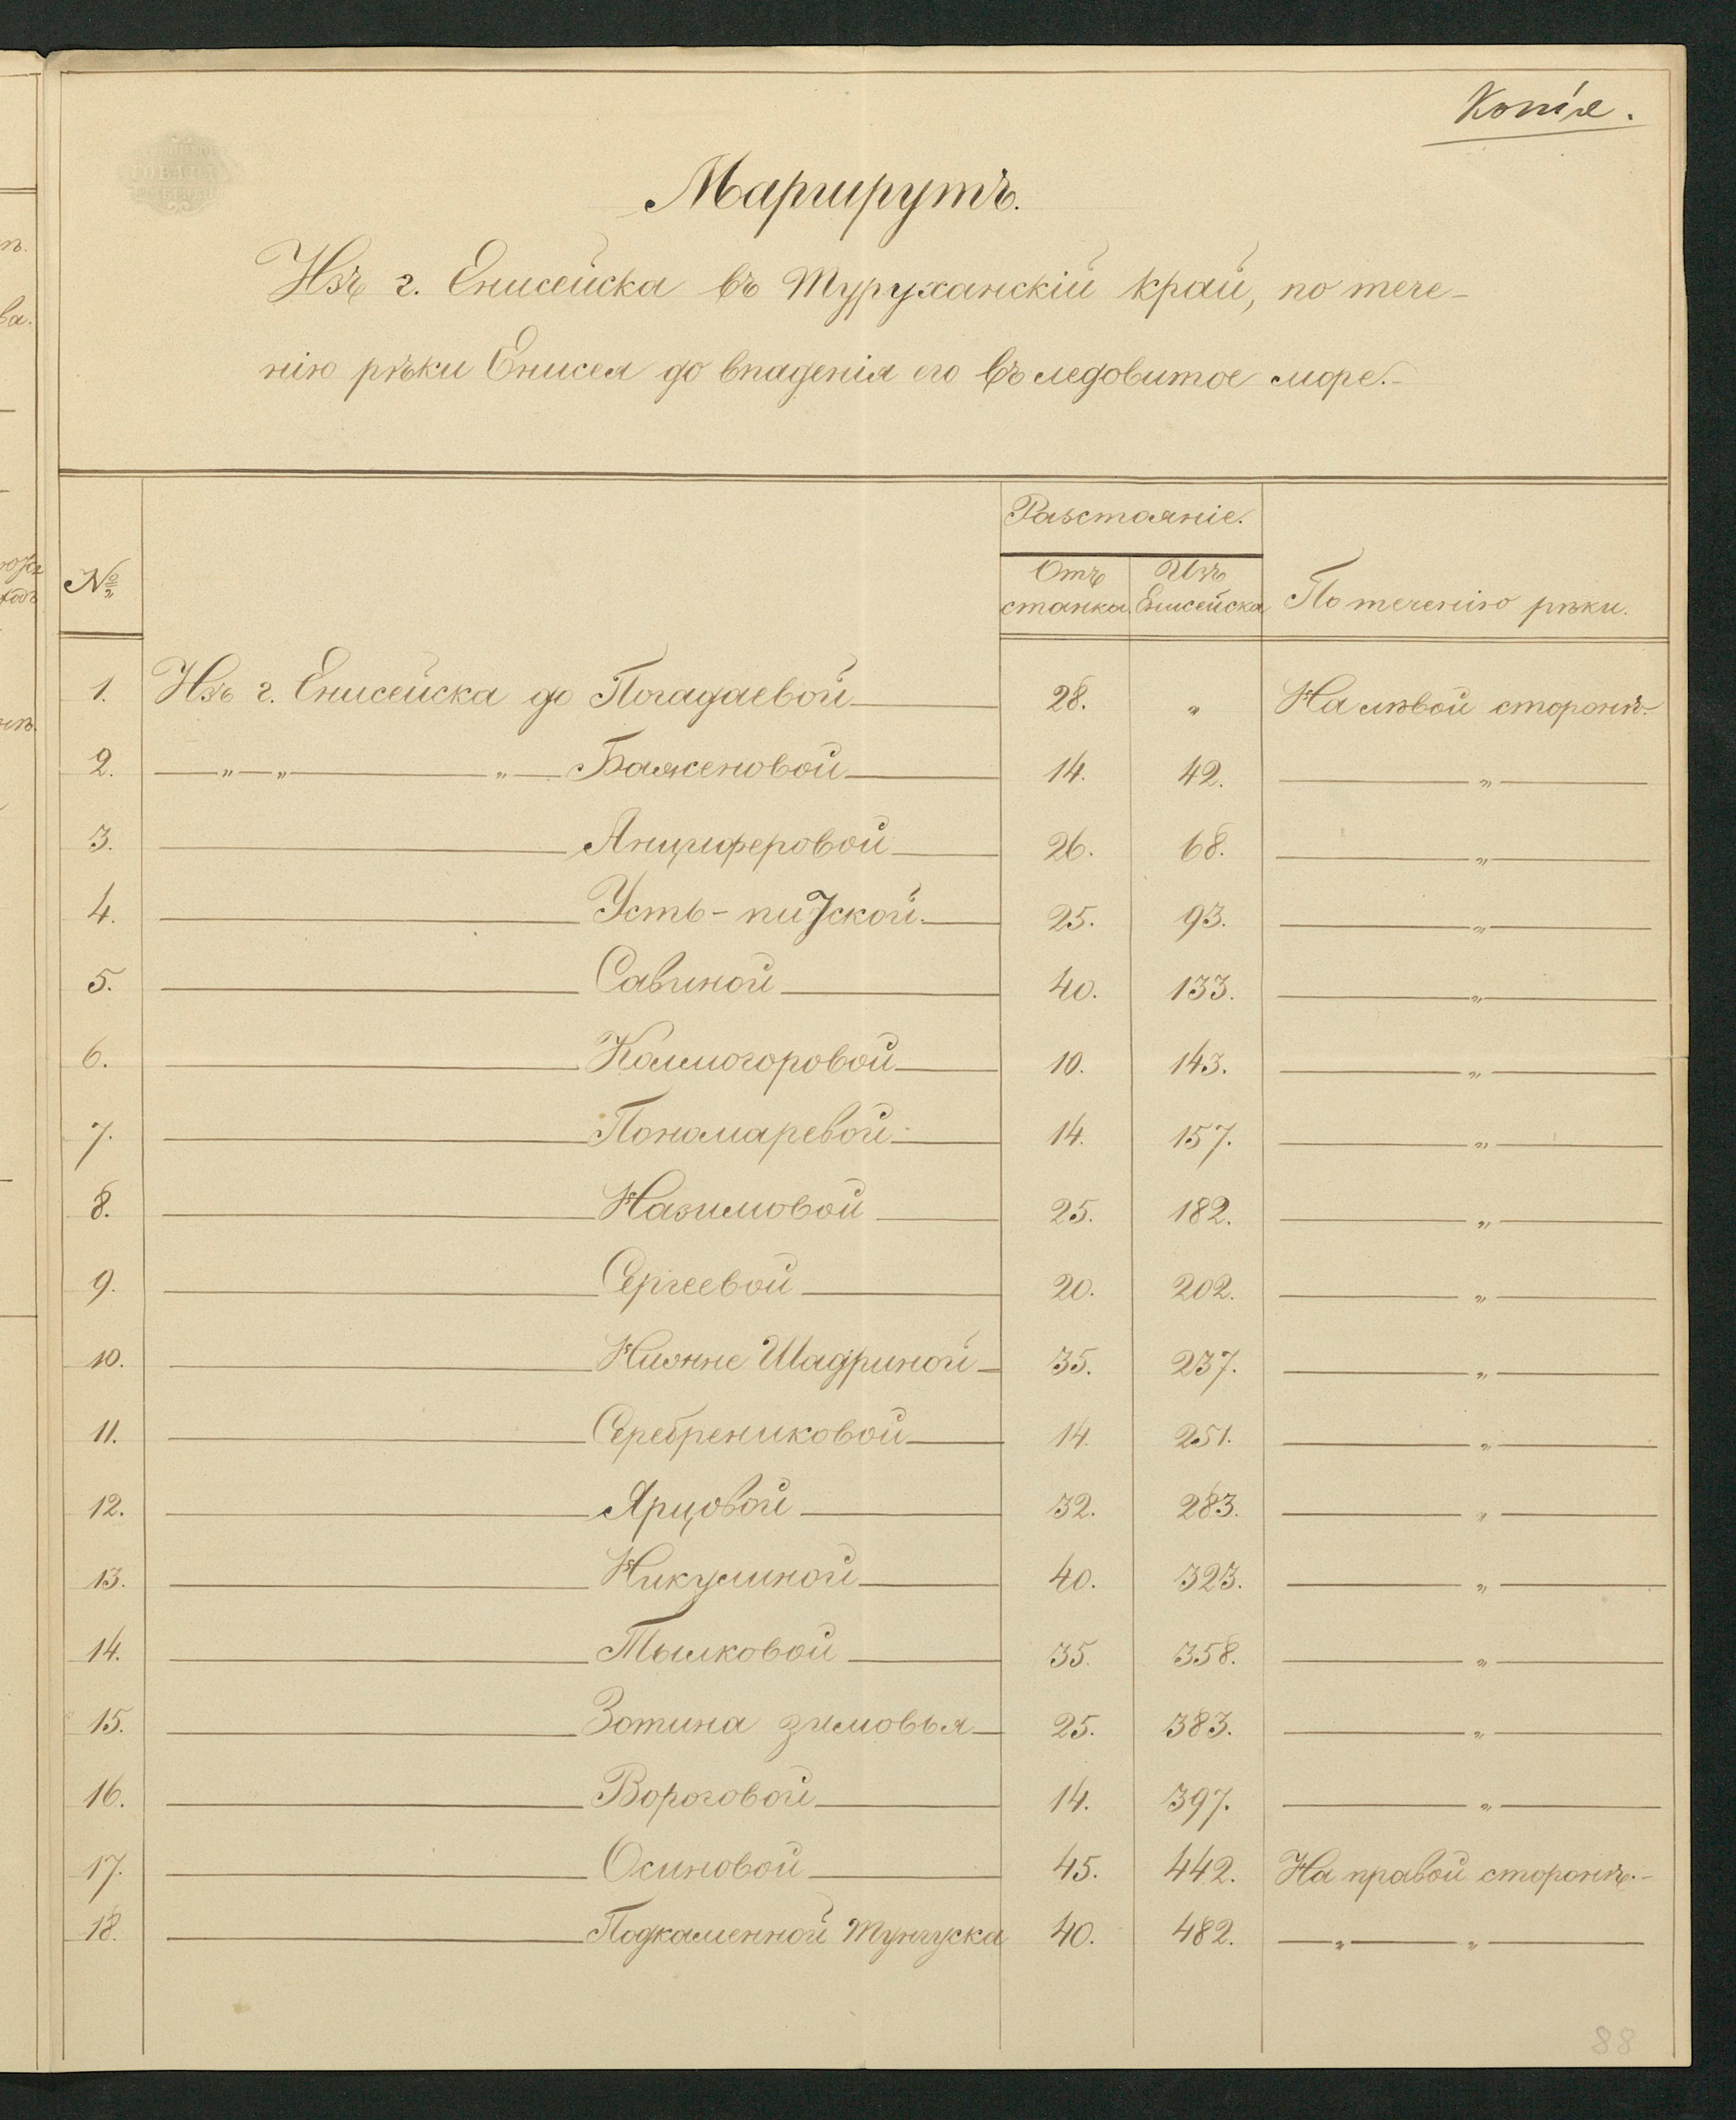 Копія.
Маршрутъ.
Изъ г. Енисейска въ Туруханскій край, по тече-
нію рѣки Енисея до впаденія его въ ледовитое море.-
№
Разстояніе.
Отъ станка.
Изъ Енисейска
По теченію рѣки.
1. Изъ г. Енисейска до Погадаевой 28. „ На лѣвой сторонѣ.
2. — „ — „ — „ — Баженовой 14. 42. — „ —
3. — Анциферовой 26. 68. — „ —
4. — Усть-питской 25. 93. — „ —
5. — Савиной 40. 133. — „ —
6. — Колмогоровой 10. 143. — „ —
7. — Пономаревой 14. 157. — „ —
8. — Назимовой 25. 182. — „ —
9. — Сергеевой 20. 202. — „ —
10. — Нижне Шадриной 35. 237. — „ —
11. — Серебрениковой 14. 251. — „ —
12. — Ярцовой 32. 283. — „ —
13. — Никулиной 40. 323. — „ —
14. — Тылковой 35. 358. — „ —
15. — Зотина зимовья 25. 383. — „ —
16. — Вороговой 14. 397. — „ —
17. — Осиновой 45. 442. На правой сторонѣ.-
18. — Подкаменной Тунгуска 40. 482. — „ — „ —
88